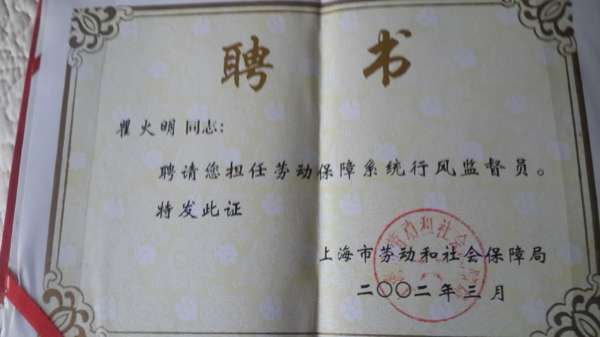 聘书
瞿火明同志:
聘请您担任劳动保障系统行风监督员。
特发此证
上海市劳动和社会保障局
二〇〇二年三月